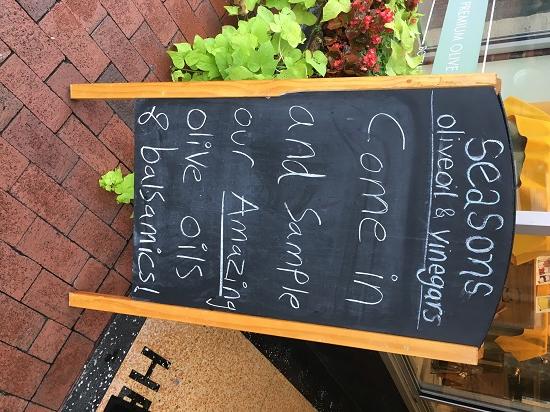 Seasons
oliveoil & vinegars
Come in
and sample
our Amazing
olive oils
& balsamics!
PREMIUM OLIVE